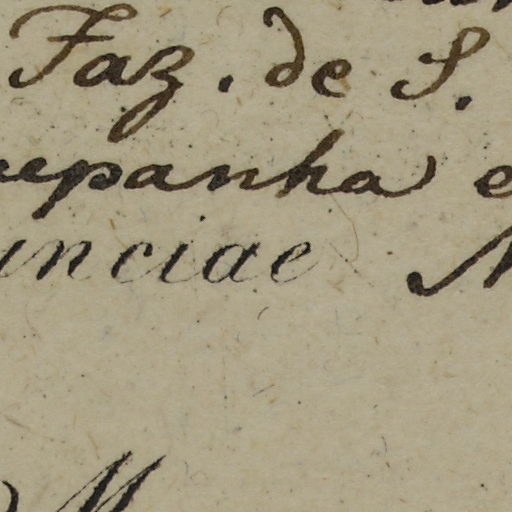 Faz. de S.
epanha e
inciae
M